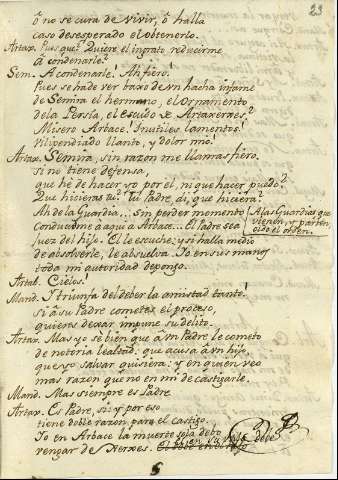 23
ô no se cura de vivir, ô halla
caso desesperado el obtenerlo.
Artax. Pues que? Quiere el ingrato reducirme
â condenarle?
Sem. A condenarle! Ah fiero!
Pues se hade ver baxo de un hacha infame
de Semira el hermano, el Ornamento
dela Persia, el escudo de Artaxerxes?
Misero Arbace! Inutiles lamentos!
Vilipendiado llanto, y dolor mio!
Artax. Semira, sin razon me llamas fiero.
si no tiene defensa,
que hè de hacer yo por èl, ni que hacer puedo?
Que hicieras tu? Tu Padre, di, que hiciera?
Ah dela Guardia... sin perder momento
A las Guardias que
vienen, y parten,
oido el orden.
Conducidme aqui a Arbace... El Padre sea
Juez del hijo. El le escuche; y si halla medio
de absolverle, le absuelva. Yo en sus manos
toda mi autoridad depongo.
Artab. Cielos.
Mand. Y triunfa del deber la amistad tanto!
si â su Padre cometes el proceso,
quieres dexar impune su delito.
Artax. Mas yo sè bien que â un Padre le cometo
de notoria lealtad: que acusa â un hijo,
que yo salvar quisiera: y en quien veo
mas razon que no en mi de castigarle.
Mand. Mas siempre es Padre.
Artax. Es Padre, si: y por eso
tiene doble razon para el castigo.
Yo en Arbace la muerte solo debo
vengar de Xerxes.